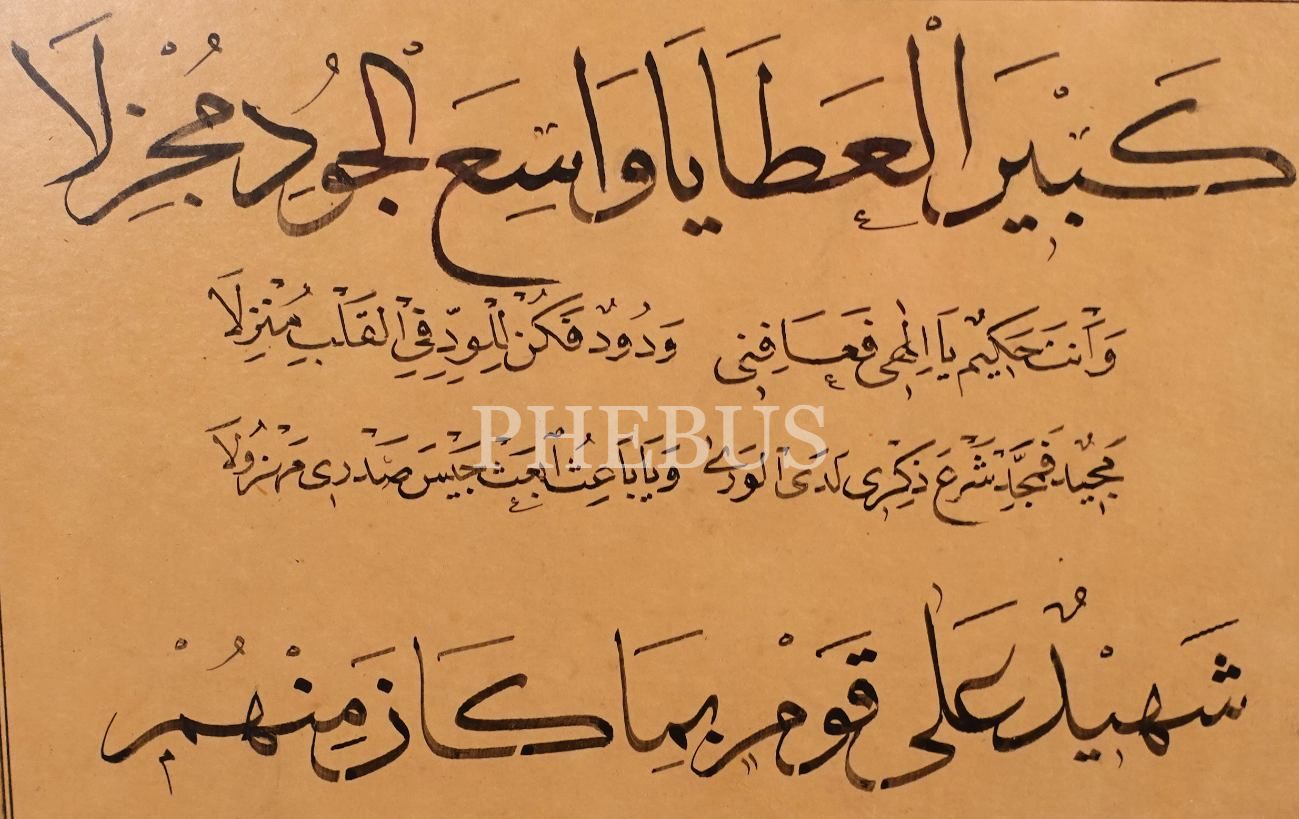 كَبِيْرَ الْعَطَايَا وَاسِعَ الْجُودِ مُجْزِلَا
وَأَنْتَ حَكِيْمٌ يَا إِلٰهِى فَعَافِنِى وَدُودٌ فَكُنْ لِلْوِدِّ فِي الْقَلْبِ مُنْزِلَا
مَجِيْدٌ فَمَجِّدْ شَرْعَ ذِكْرِى لَدَى الْوَرٰى وَيَا بَاعِثُ ابْعَثْ جَيْشَ صَدْرِى مَهْزُولَا
PHEBUS
شَهِيْدٌ عَلٰى قَوْمٍ بِمَا كَانَ مِنْهُمْ